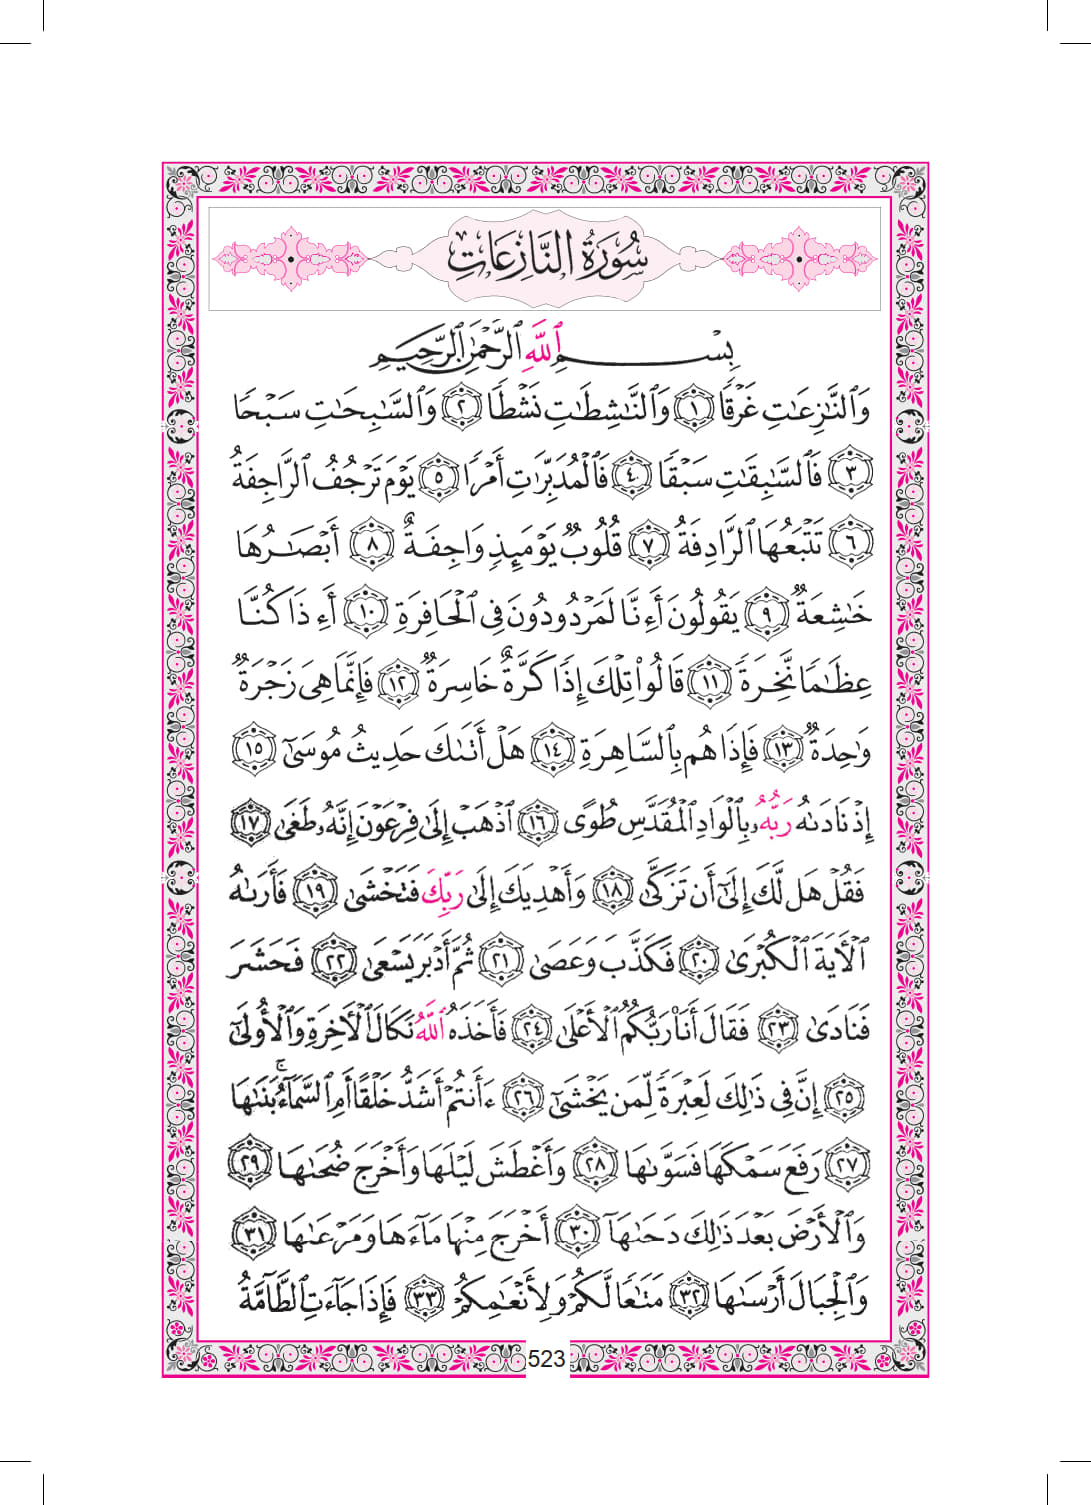 سُورَةُ النَّازِعَاتِ
بِسْمِ ٱللَّهِ ٱلرَّحْمَٰنِ ٱلرَّحِيمِ
وَٱلنَّٰزِعَٰتِ غَرْقًا ١ وَٱلنَّٰشِطَٰتِ نَشْطًا ٢ وَٱلسَّٰبِحَٰتِ سَبْحًا
٣ فَٱلسَّٰبِقَٰتِ سَبْقًا ٤ فَٱلْمُدَبِّرَٰتِ أَمْرًا ٥ يَوْمَ تَرْجُفُ ٱلرَّاجِفَةُ
٦ تَتْبَعُهَا ٱلرَّادِفَةُ ٧ قُلُوبٌ يَوْمَئِذٍ وَاجِفَةٌ ٨ أَبْصَٰرُهَا
خَٰشِعَةٌ ٩ يَقُولُونَ أَءِنَّا لَمَرْدُودُونَ فِى ٱلْحَافِرَةِ ١٠ أَءِذَا كُنَّا
عِظَٰمًا نَّخِرَةً ١١ قَالُوا۟ تِلْكَ إِذًا كَرَّةٌ خَاسِرَةٌ ١٢ فَإِنَّمَا هِىَ زَجْرَةٌ
وَٰحِدَةٌ ١٣ فَإِذَا هُم بِٱلسَّاهِرَةِ ١٤ هَلْ أَتَىٰكَ حَدِيثُ مُوسَىٰٓ ١٥
إِذْ نَادَىٰهُ رَبُّهُۥ بِٱلْوَادِ ٱلْمُقَدَّسِ طُوًى ١٦ ٱذْهَبْ إِلَىٰ فِرْعَوْنَ إِنَّهُۥ طَغَىٰ ١٧
فَقُلْ هَل لَّكَ إِلَىٰٓ أَن تَزَكَّىٰ ١٨ وَأَهْدِيَكَ إِلَىٰ رَبِّكَ فَتَخْشَىٰ ١٩ فَأَرَىٰهُ
ٱلْءَايَةَ ٱلْكُبْرَىٰ ٢٠ فَكَذَّبَ وَعَصَىٰ ٢١ ثُمَّ أَدْبَرَ يَسْعَىٰ ٢٢ فَحَشَرَ
فَنَادَىٰ ٢٣ فَقَالَ أَنَا۠ رَبُّكُمُ ٱلْأَعْلَىٰ ٢٤ فَأَخَذَهُ ٱللَّهُ نَكَالَ ٱلْءَاخِرَةِ وَٱلْأُولَىٰٓ
٢٥ إِنَّ فِى ذَٰلِكَ لَعِبْرَةً لِّمَن يَخْشَىٰٓ ٢٦ ءَأَنتُمْ أَشَدُّ خَلْقًا أَمِ ٱلسَّمَآءُ ۚ بَنَىٰهَا
٢٧ رَفَعَ سَمْكَهَا فَسَوَّىٰهَا ٢٨ وَأَغْطَشَ لَيْلَهَا وَأَخْرَجَ ضُحَىٰهَا ٢٩
وَٱلْأَرْضَ بَعْدَ ذَٰلِكَ دَحَىٰهَآ ٣٠ أَخْرَجَ مِنْهَا مَآءَهَا وَمَرْعَىٰهَا ٣١
وَٱلْجِبَالَ أَرْسَىٰهَا ٣٢ مَتَٰعًا لَّكُمْ وَلِأَنْعَٰمِكُمْ ٣٣ فَإِذَا جَآءَتِ ٱلطَّآمَّةُ
523